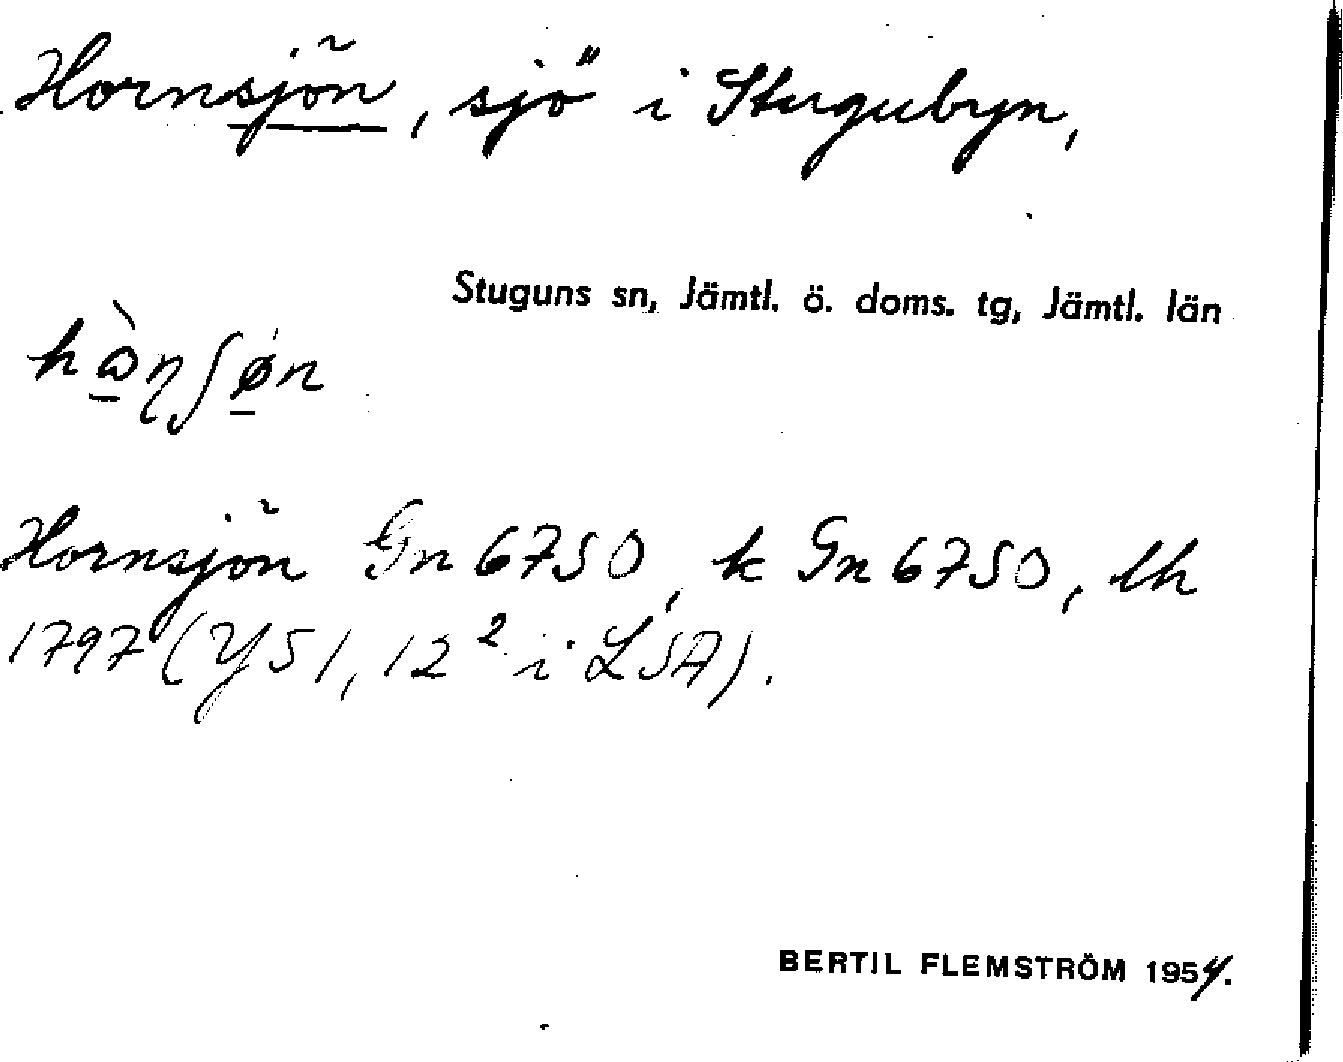 Hornsjön, sjö i Stugubyn,
Stuguns sn, Jämtl. ö. doms. tg, Jämtl. län
Hornsjön Gn 6750, k Gn 6750, lh
1797 (Y51, 12² i LSA).
BERTIL FLEMSTRÖM 1954.